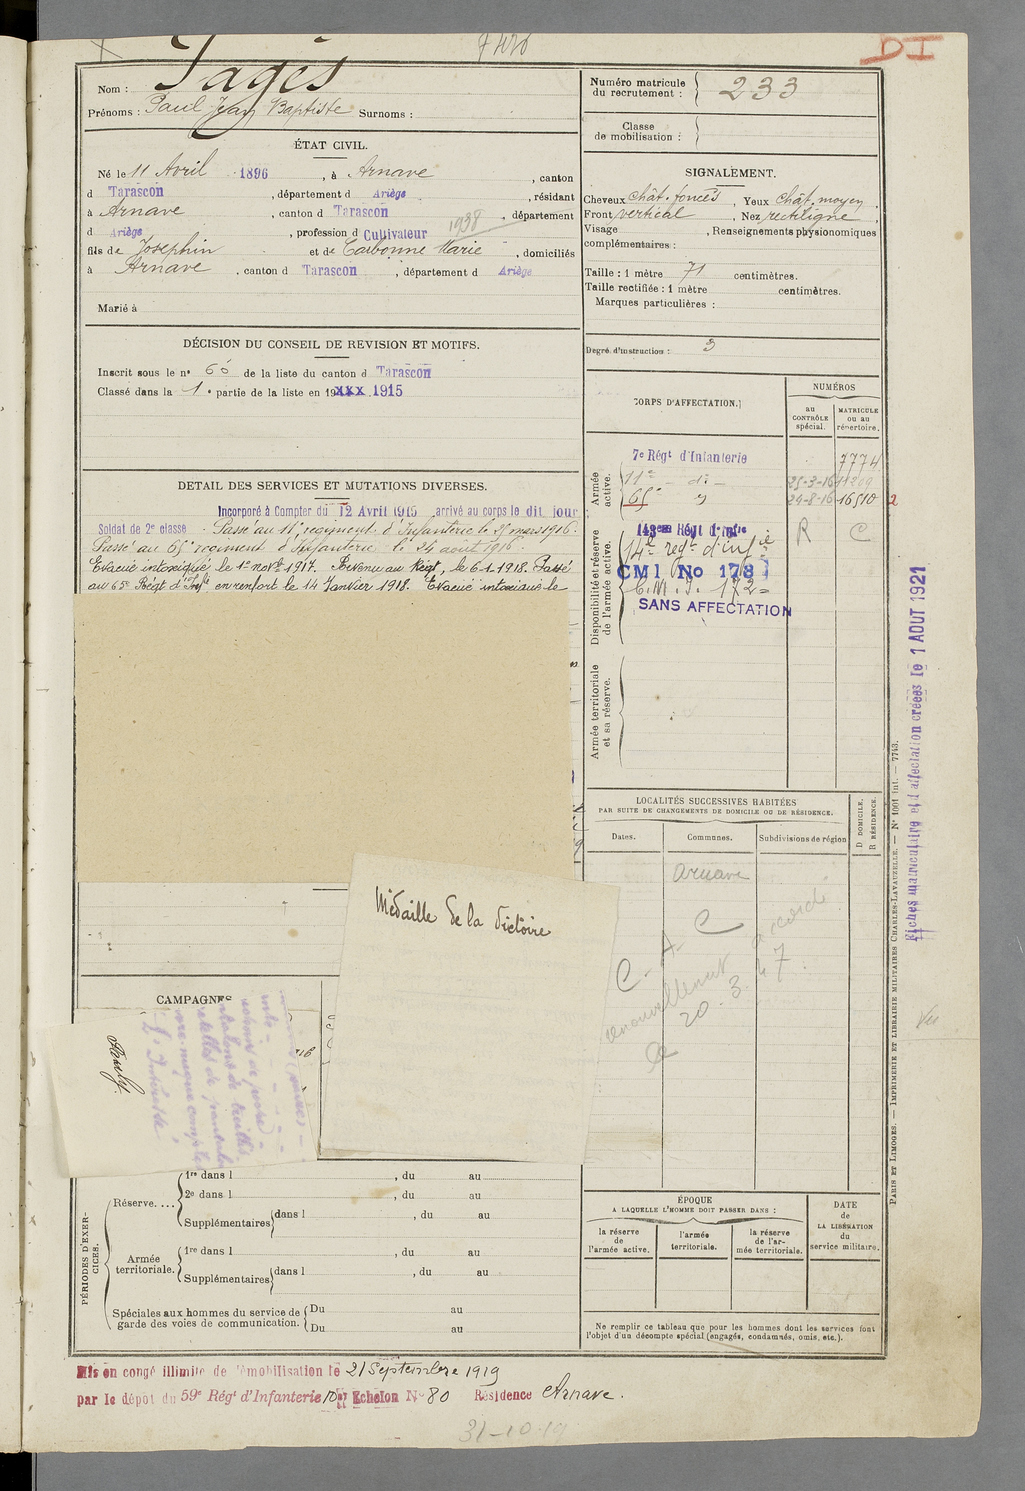 7476
DI
Nom : Pagès
Prénoms : Paul Jean Baptiste Surnoms :
Numéro matricule du recrutement : 233
Classe de mobilisation :
ÉTAT CIVIL.
Né le 11 Avril 1896, à Arnave, canton
d Tarascon, département d Ariège, résidant
à Arnave, canton d Tarascon, département
1938
d Ariège, profession d Cultivateur
fils de Josephin et de Carbonne Marie, domiciliés
à Arnave, canton d Tarascon, département d Ariège
Marié à
SIGNALEMENT.
Cheveux chât. foncés, Yeux chât. moyen
Front vertical, Nez rectiligne
Visage, Renseignements physionomiques
complémentaires :
Taille : 1 mètre 71 centimètres.
Taille rectifiée : 1 mètre centimètres.
Marques particulières :
Degré d'instruction : 3
DÉCISION DU CONSEIL DE REVISION ET MOTIFS.
Inscrit sous le n° 60 de la liste du canton d Tarascon
Classé dans la 1e partie de la liste en 19xxx 1915
CORPS D'AFFECTATION.
NUMÉROS
au CONTRÔLE spécial.
MATRICULE ou au répertoire.
Armée active.
7e Régt d'Infanterie 7774
11e - di - 25-3-16
65e 24-8-16 16510
Disponibilité et réserve de l'armée active.
14e regt d'infie R C
CMI No 178
C.M.I. 172
SANS AFFECTATION
Armée territoriale et sa réserve.
DETAIL DES SERVICES ET MUTATIONS DIVERSES.
Incorporé à Compter du 12 Avril 1915 arrivé au corps le dit jour
Soldat de 2e classe. Passé au 11e régiment d'Infanterie le 25 mars 1916.
Passé au 65e régiment d'Infanterie le 24 août 1916.
Evacué intoxiqué le 1er novbre 1917. Revenu au Régt, le 6-1-1918. Passé
au 65e Régt d'Infie en renfort le 14 Janvier 1918. Evacué intoxiqué le
Médaille de la Victoire
LOCALITÉS SUCCESSIVES HABITÉES
PAR SUITE DE CHANGEMENTS DE DOMICILE OU DE RÉSIDENCE.
Dates. Communes. Subdivisions de région
D DOMICILE.
R RÉSIDENCE.
Arnave
C. A. C
accordé
renouvellement
20.3.47
CAMPAGNES
Pauly
PÉRIODES D'EXERCICES.
Réserve....
1re dans l , du au
2e dans l , du au
Supplémentaires dans l , du au
Armée territoriale.
1re dans l , du au
Supplémentaires dans l , du au
Spéciales aux hommes du service de garde des voies de communication.
Du au
Du au
ÉPOQUE
A LAQUELLE L'HOMME DOIT PASSER DANS :
la réserve de l'armée active.
l'armée territoriale.
la réserve de l'armée territoriale.
DATE de LA LIBÉRATION du service militaire.
Ne remplir ce tableau que pour les hommes dont les services font
l'objet d'un décompte spécial (engagés, condamnés, omis, etc.).
Mis en congé illimité de démobilisation le 21 Septembre 1919
par le dépôt du 59e Régt d'Infanterie 10e Echelon No 80 Résidence Arnave.
31-10-19
Fiches matriculaire et d'affectation créées le 1 AOUT 1921
PARIS ET LIMOGES. — IMPRIMERIE ET LIBRAIRIE MILITAIRES CHARLES-LAVAUZELLE. — N° 1001 Int. — 7743.
Vu